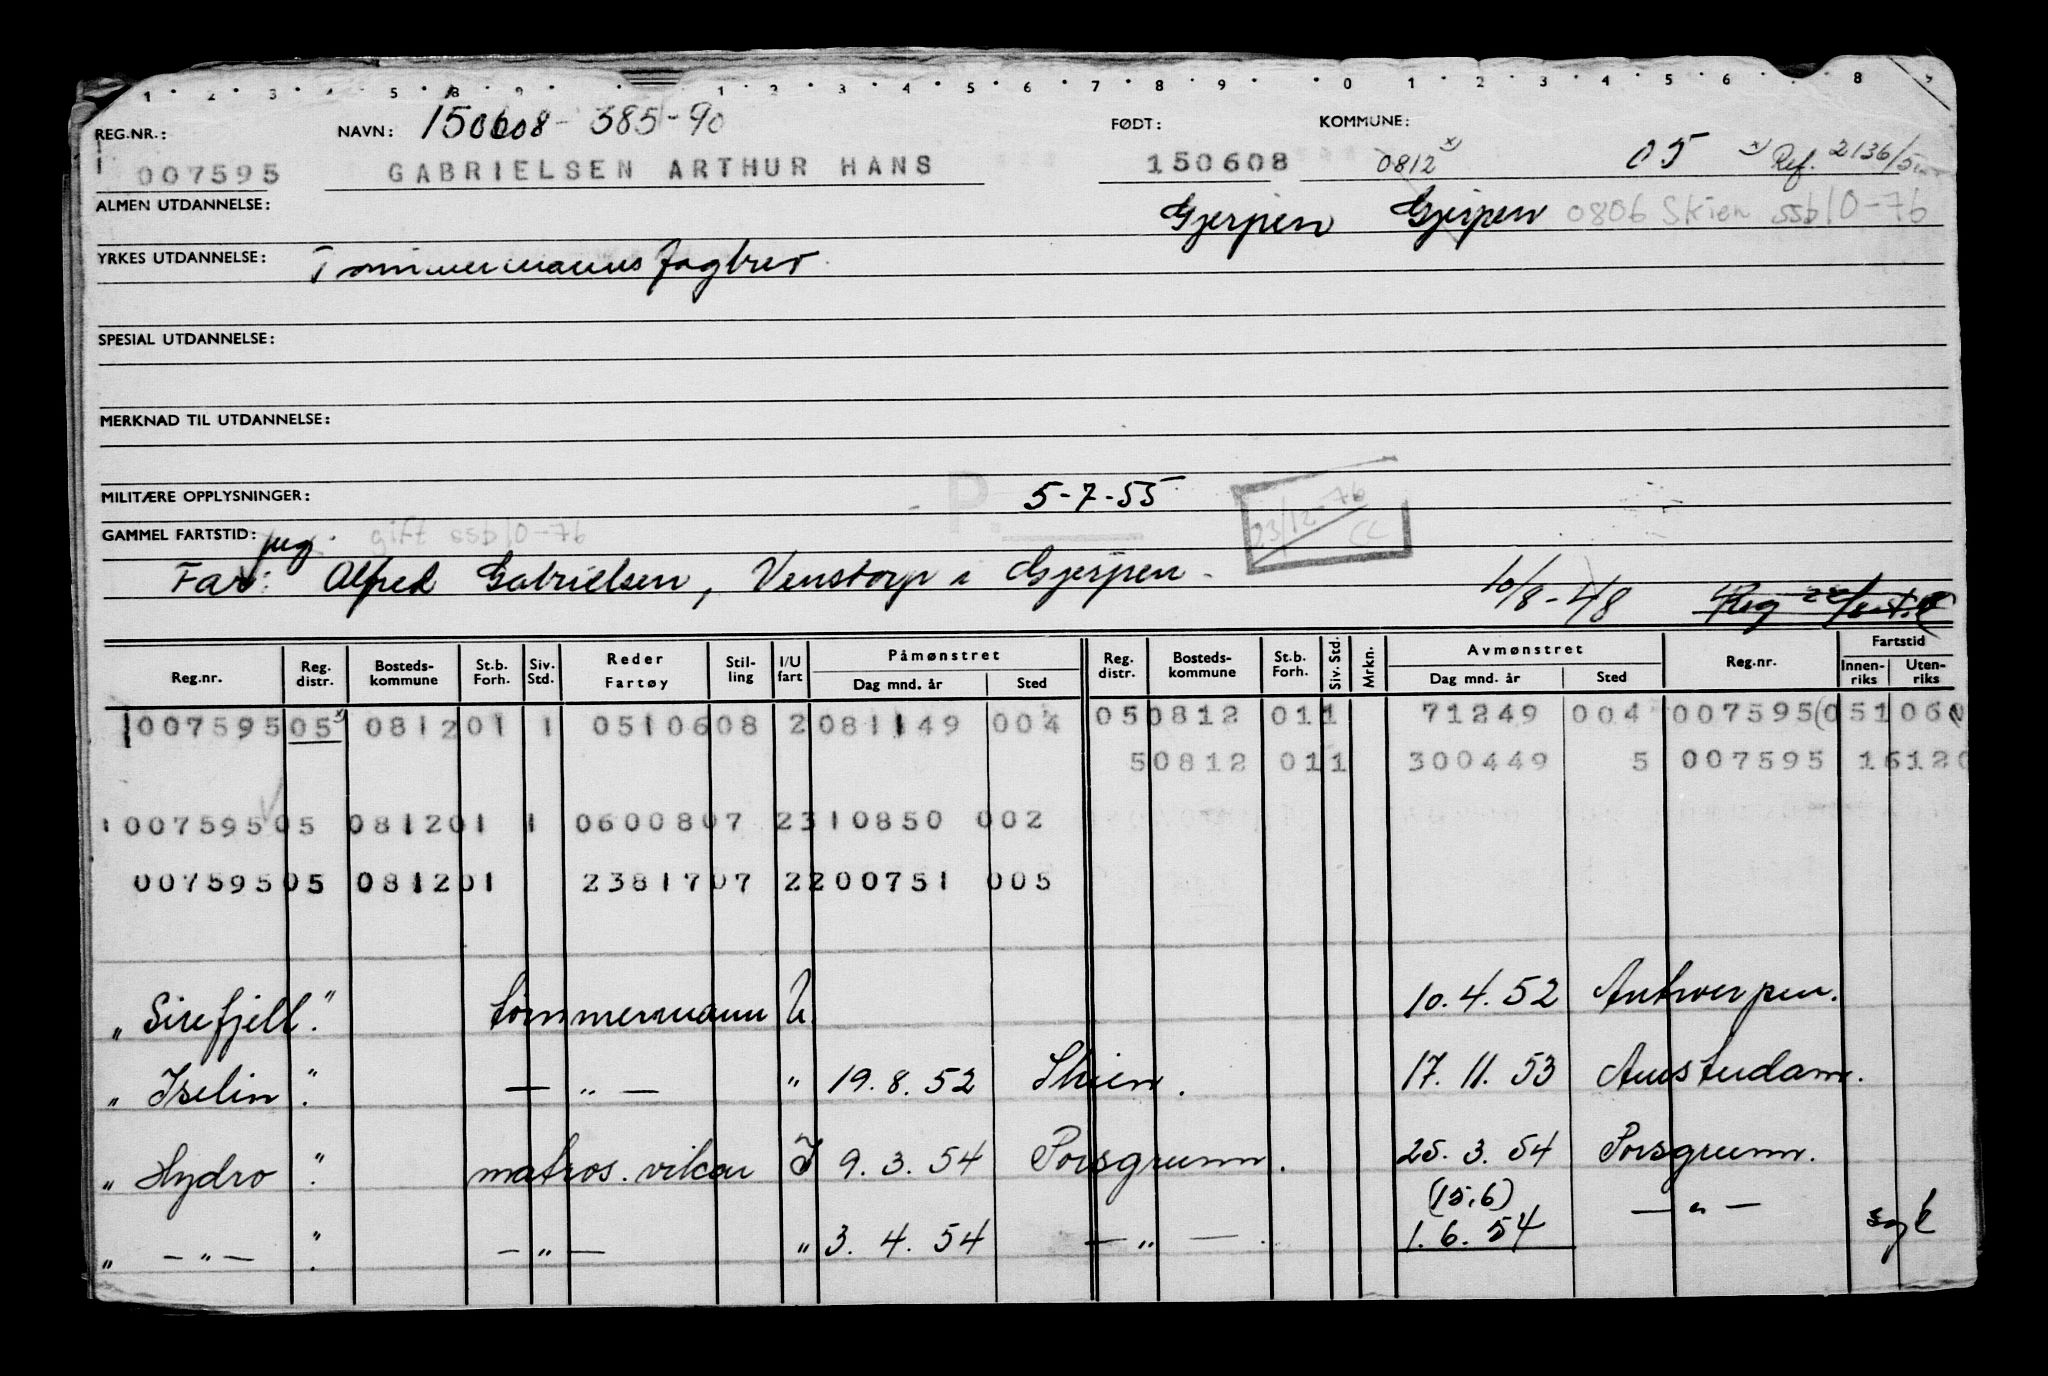 1 2 3 4 5 8 9 1 2 3 4 5 6 7 8 9 0 1 2 3 4 5 6 8
REG.NR.: NAVN: 150608-385-90 FØDT: KOMMUNE:
007595 GABRIELSEN ARTHUR HANS 150608 0812 x) 05 x) Ref. 2136/
ALMEN UTDANNELSE: Gjerpen Gjerpen 0806 Skien ssb 10-76
YRKES UTDANNELSE: Tømmermanns fagbrev.
SPESIAL UTDANNELSE:
MERKNAD TIL UTDANNELSE:
MILITÆRE OPPLYSNINGER: P. 5-7-55 23/12-76
GAMMEL FARTSTID: gift ssb 10-76
Far: Alfred Gabrielsen, Venstorp i Gjerpen. 10/8-48 Reg
Reg.nr. Reg. distr. Bosteds- kommune St.b. Forh. Siv. Std. Reder Fartøy Stil- ling I/U fart Påmønstret Dag mnd. år Sted Reg. distr. Bosteds- kommune St.b. Forh. Siv. Std. Mrkn. Avmønstret Dag mnd. år Sted Reg.nr. Fartstid Innen- riks Uten- riks
1007595 05 x) 0812 01 1 051060 8 2 081149 004 05 0812 01 1 71249 004 007595 051 060
5 0812 01 1 300449 5 007595 16120
1007595 05 0812 01 1 060080 7 2 310850 002
007595 05 0812 01 238170 7 2 200751 005
"Sirefjell." tømmermann U. 10.4.52 Antwerpen.
"Iselin". — " — " 19.8.52 Skien. 17.11.53 Amsterdam.
"Hydro". matros.vikar I 9.3.54 Porsgrunn. 25.3.54 Porsgrunn.
(15.6)
" — " — ". — " — " 3.4.54 — " — . 1.6.54 — " —